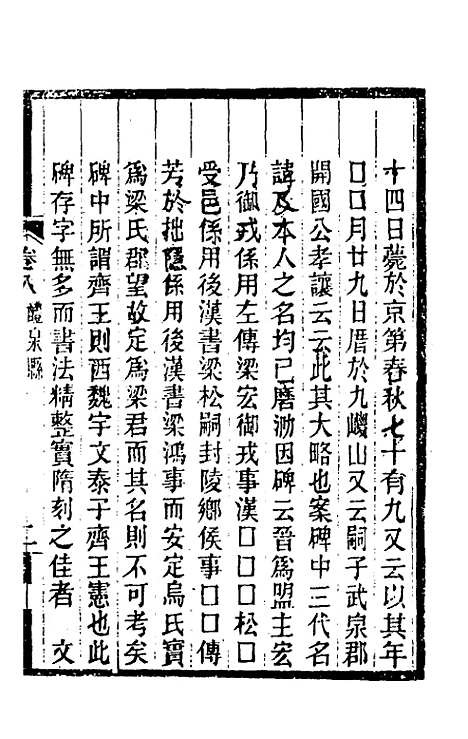 十四日薨於京第春秋七十有九又云以其年
□□月廿九日厝於九嵕山又云嗣子武泉郡
開國公孝讓云云此其大略也案碑中三代名
諱及本人之名均已磨泐因碑云晉爲盟主宏
乃御戎係用左傳梁宏御戎事漢□□□松□
受邑係用後漢書梁松嗣封陵鄉侯事□□傳
芳於拙隱係用後漢書梁鴻事而安定烏氏實
爲梁氏郡望故定爲梁君而其名則不可考矣
碑中所謂齊王則西魏宇文泰子齊王憲也此
碑存字無多而書法精整實隋刻之佳者　文
卷八　醴泉縣　二